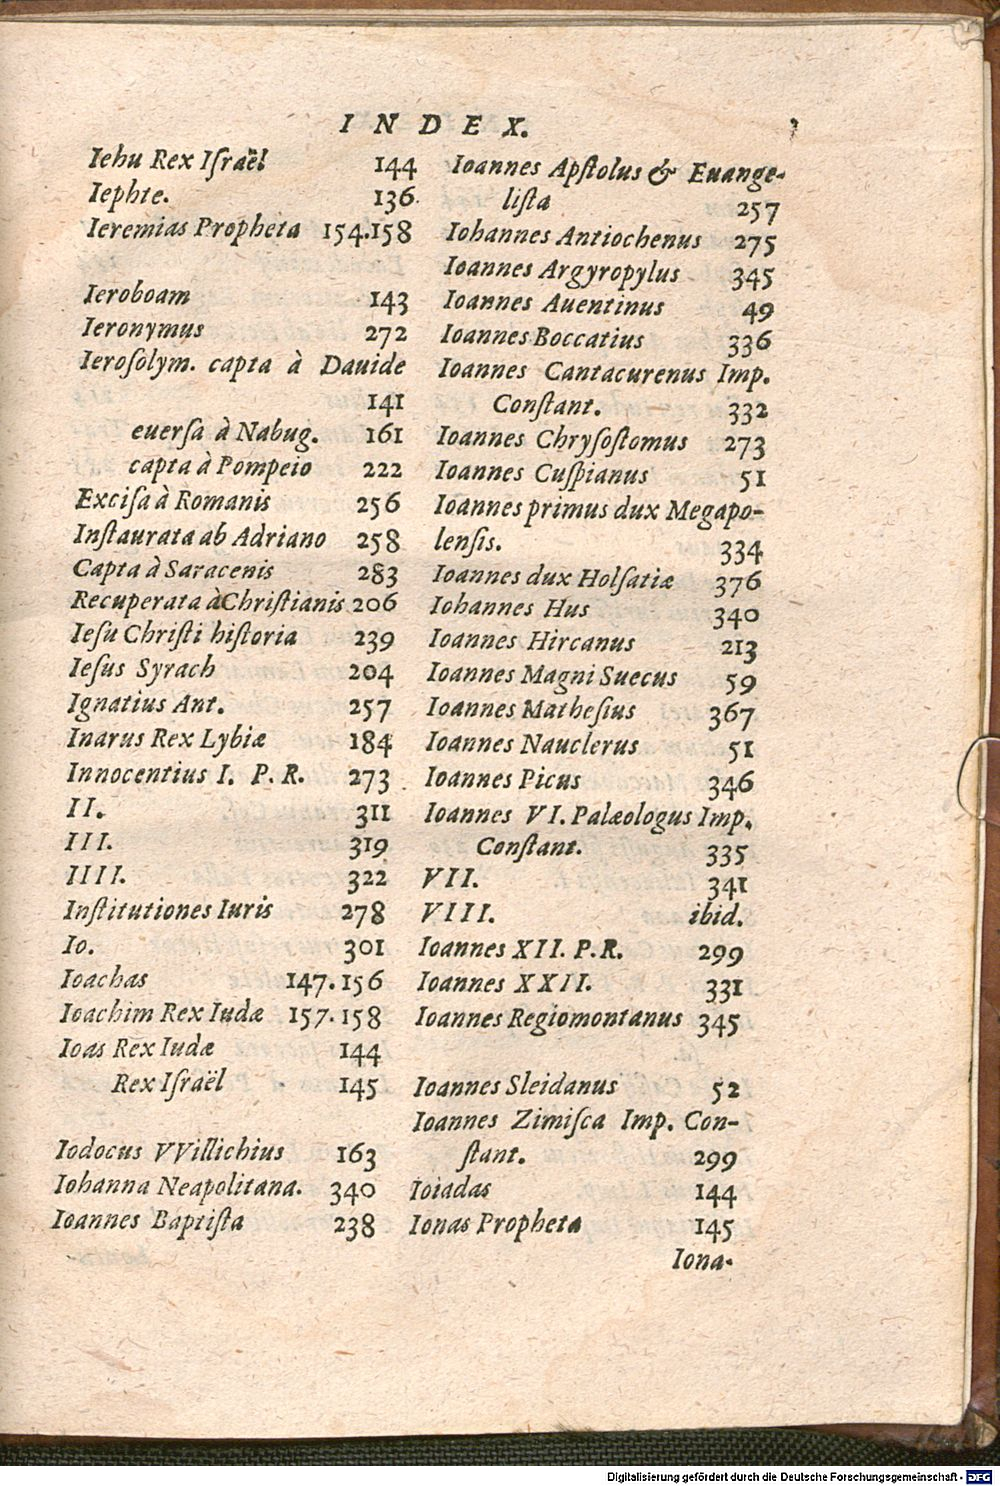 INDEX.
Iehu Rex Iſraël 144
Iephte. 136
Ieremias Propheta 154.158
Ieroboam 143
Ieronymus 272
Ieroſolym. capta à Dauide
141
euerſa à Nabug. 161
capta à Pompeio 222
Exciſa à Romanis 256
Inſtaurata ab Adriano 258
Capta à Saracenis 283
Recuperata à Chriſtianis 206
Ieſu Chriſti hiſtoria 239
Ieſus Syrach 204
Ignatius Ant. 257
Inarus Rex Lybiæ 184
Innocentius I. P. R. 273
II. 311
III. 319
IIII. 322
Inſtitutiones Iuris 278
Io. 301
Ioachas 147.156
Ioachim Rex Iudæ 157.158
Ioas Rex Iudæ 144
Rex Iſraël 145
Iodocus VVillichius 163
Iohanna Neapolitana. 340
Ioannes Baptiſta 238
Ioannes Apſtolus & Euange-
liſta 257
Iohannes Antiochenus 275
Ioannes Argyropylus 345
Ioannes Auentinus 49
Ioannes Boccatius 336
Ioannes Cantacurenus Imp.
Conſtant. 332
Ioannes Chryſoſtomus 273
Ioannes Cuſpianus 51
Ioannes primus dux Megapo-
lenſis. 334
Ioannes dux Holſatiæ 376
Iohannes Hus 340
Ioannes Hircanus 213
Ioannes Magni Suecus 59
Ioannes Matheſius 367
Ioannes Nauclerus 51
Ioannes Picus 346
Ioannes VI. Palæologus Imp.
Conſtant. 335
VII. 341
VIII. ibid.
Ioannes XII. P. R. 299
Ioannes XXII. 331
Ioannes Regiomontanus 345
Ioannes Sleidanus 52
Ioannes Zimiſca Imp. Con-
ſtant. 299
Ioiadas 144
Ionas Propheta 145
Iona-
Digitalisierung gefördert durch die Deutsche Forschungsgemeinschaft - DFG